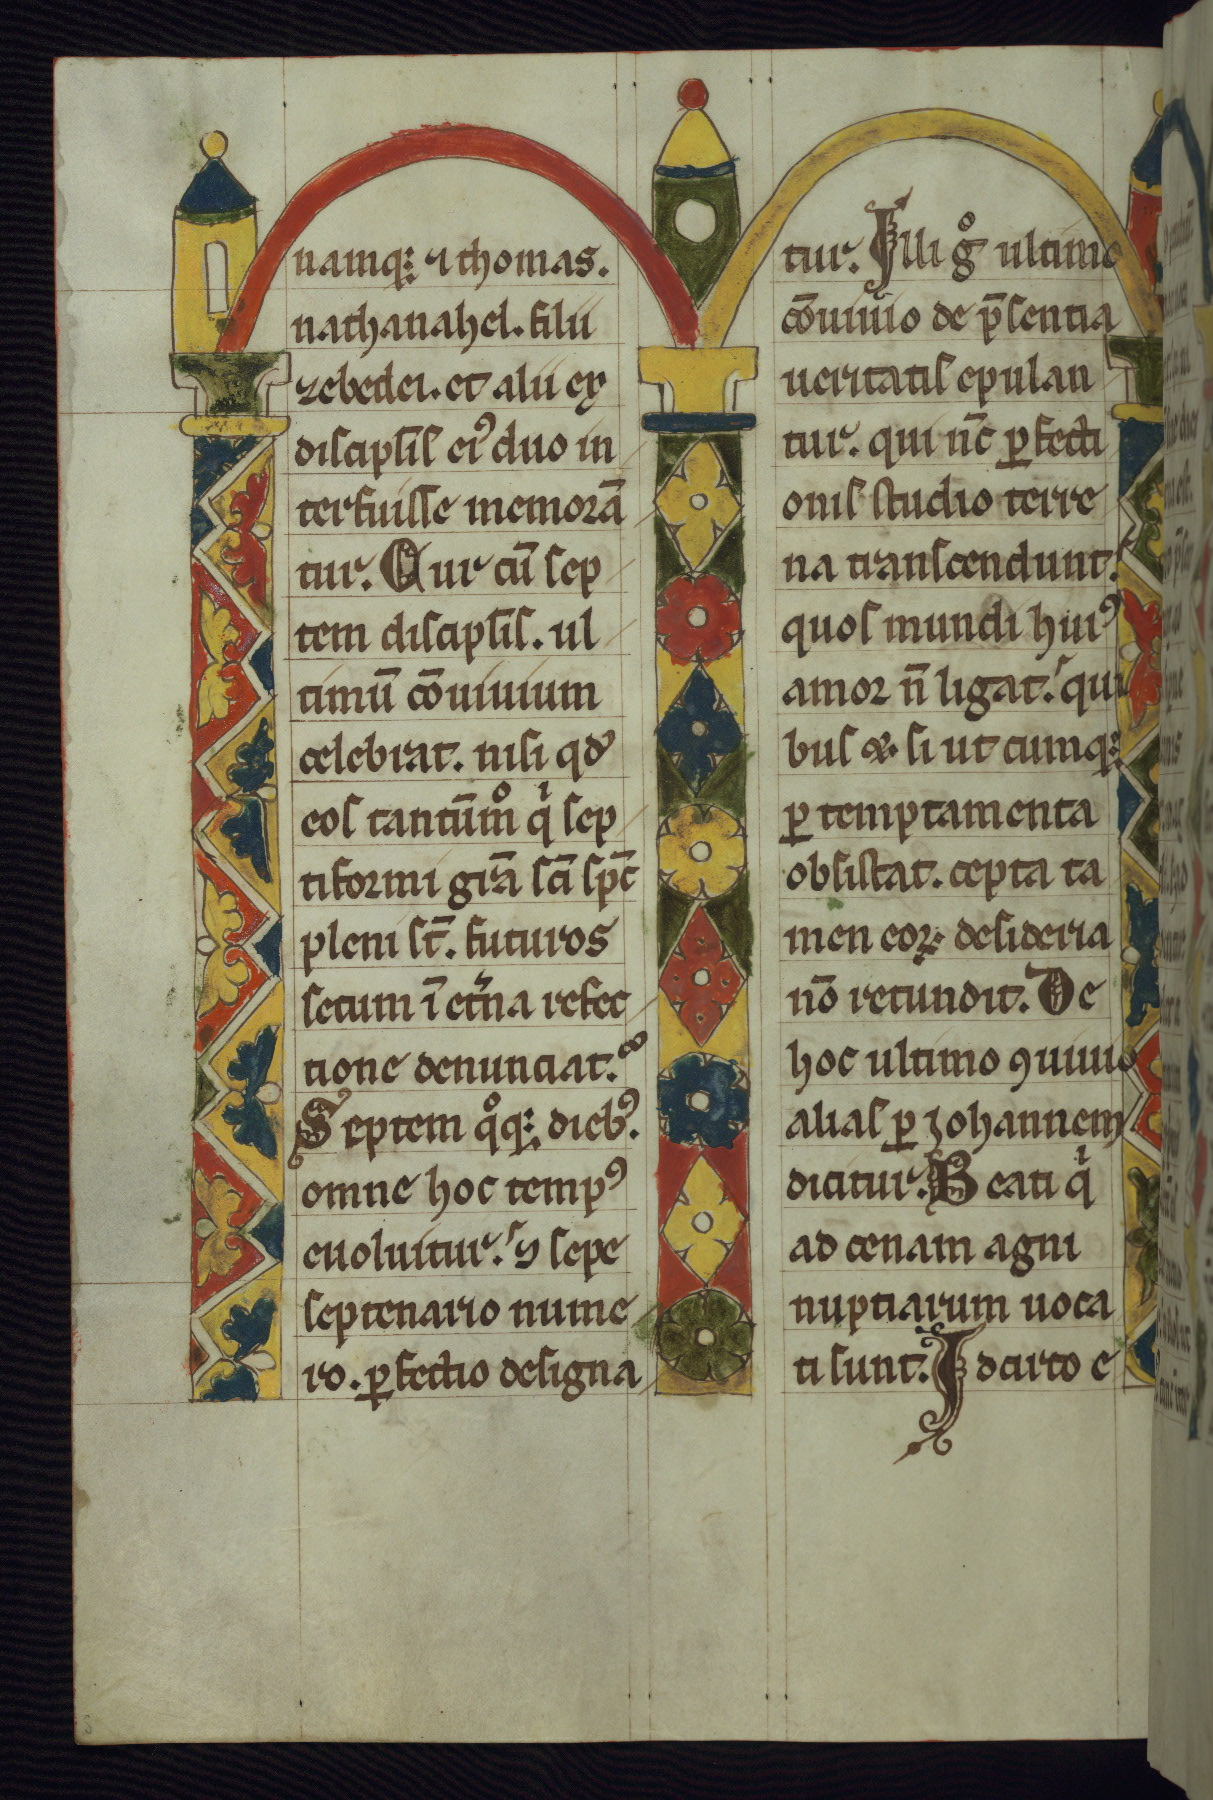 namq; ⁊ thomas.
nathanahel. filii
zebedei. et alii ex
discipl̄is ei᾽ duo in
terfuisse memorā
tur. Cur cū sep
tem discipl̄is. ul
timū cōuiuium
celebrat. nisi qd᾽
eos tantūmͦ qͥ sep
tiformi gr̄a sc̄i sp̄c
pleni st̄. futuros
secum ī et̄na refec
tione denunciat.
Septem qͦq; dieb᾽.
omne hoc temp᾽
euoluitur. ⁊ sepe
septenario nume
ro. ꝑfectio designa
tur. Illi gͦ ultimo
cōuiuio de p̄sentia
ueritatis epulan
tur. qui nc̄ ꝑfecti
onis studio terre
na transcendunt.
quos mundi hui᾽
amor n̄ ligat. qui
bus &. si ut cumq;
ꝑ temptamenta
obsistat. cepta ta
men eoꝝ desideria
nō retundit. De
hoc ultimo ꝯuiuio
alias ꝑ iohannem
dicitur. Beati qͥ
ad cenam agni
nuptiarum uoca
ti sunt. Idcirco e